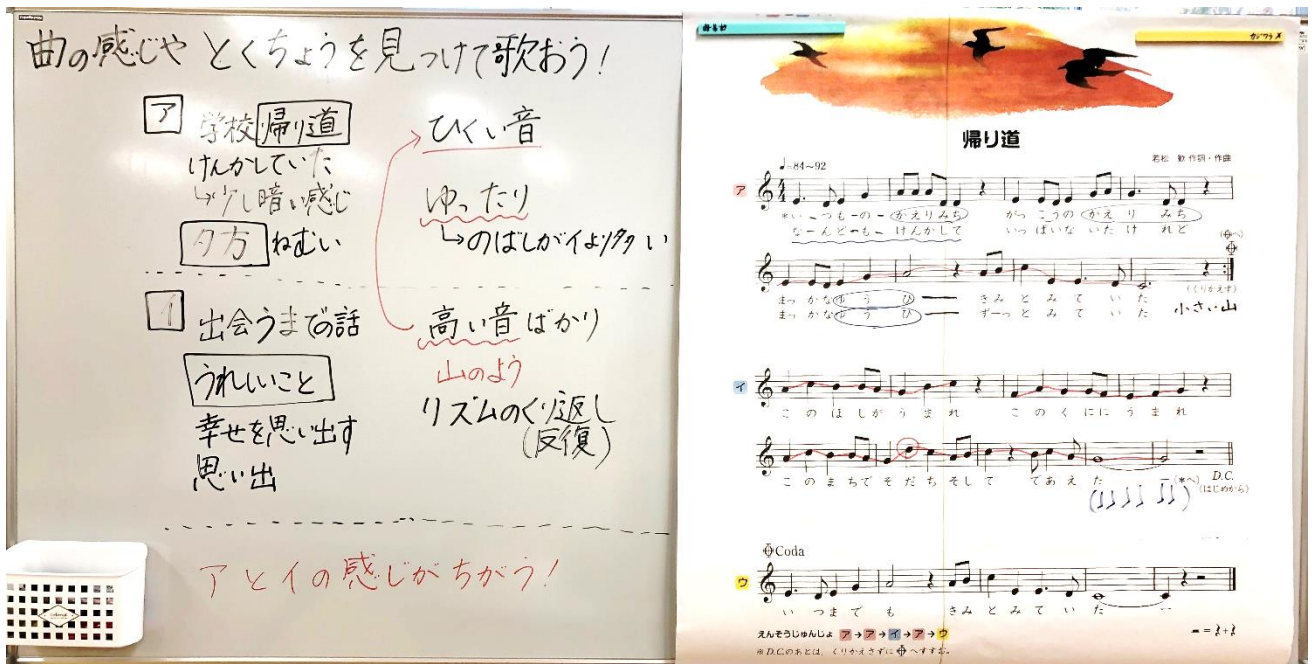 曲の感じや とくちょうを見つけて歌おう!
ア 学校帰り道
けんかしていた
↳少し暗い感じ
夕方 ねむい
ひくい音
ゆったり
↳のばしがイより多い
イ 出会うまでの話
うれしいこと
幸せを思い出す
思い出
高い音ばかり
山のよう
リズムのくり返し
(反復)
アとイの感じがちがう!
帰り道
若松 歓 作詞・作曲
♩=84~92
ア
*い ー つ も ー の ー か え り み ち がっ こ う の か え り み ち
な ー ん ど ー も ー け ん か し て い っ ぱ い な い た け れ ど
(𝄌へ)
まっ か な ゆ う ひ ー き み と み て い た
まっ か な ゆ う ひ ー ずーっ と み て い た
(くりかえす)
小さい山
イ
こ の ほ し が う ま れ こ の く に に う ま れ
こ の ま ち で そ だ ち そ し て で あ え た ー (*へ) D.C.
(はじめから)
𝄌Coda
ウ
い つ ま で も き み と み て い た ー
えんそうじゅんじょ ア→ア→イ→ア→ウ
※D.C.のあとは、くりかえさずに𝄌へすすむ。